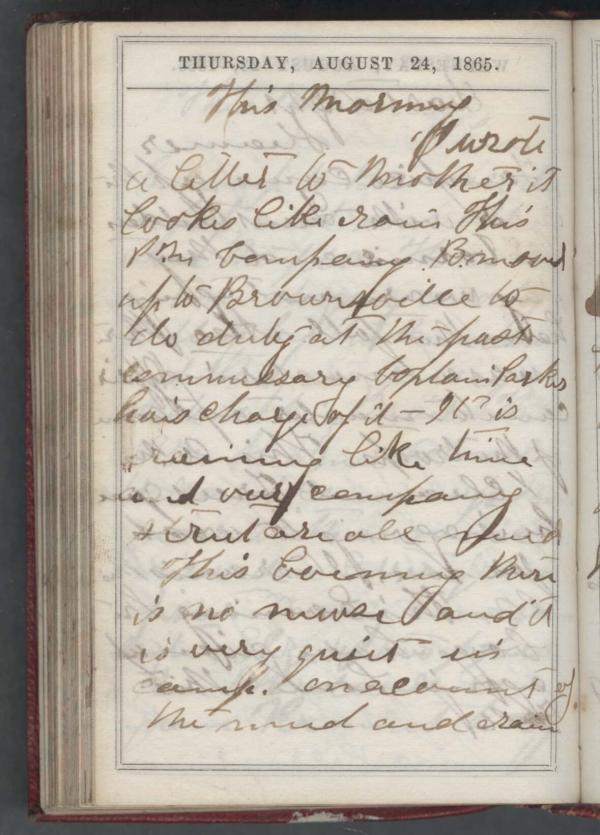 THURSDAY, AUGUST 24, 1865.
This Morning
I wrote
a letter to Mother it
lookes like rain This
P.M Company B. moved
up to Brownsville to
do duty at the post
commissary Captain Parker
hais charge of it – It is
raining like time
and our company
street are all mud
This Evening there
is no newse and it
is very quiet in
camp. on account of
the mud and rain